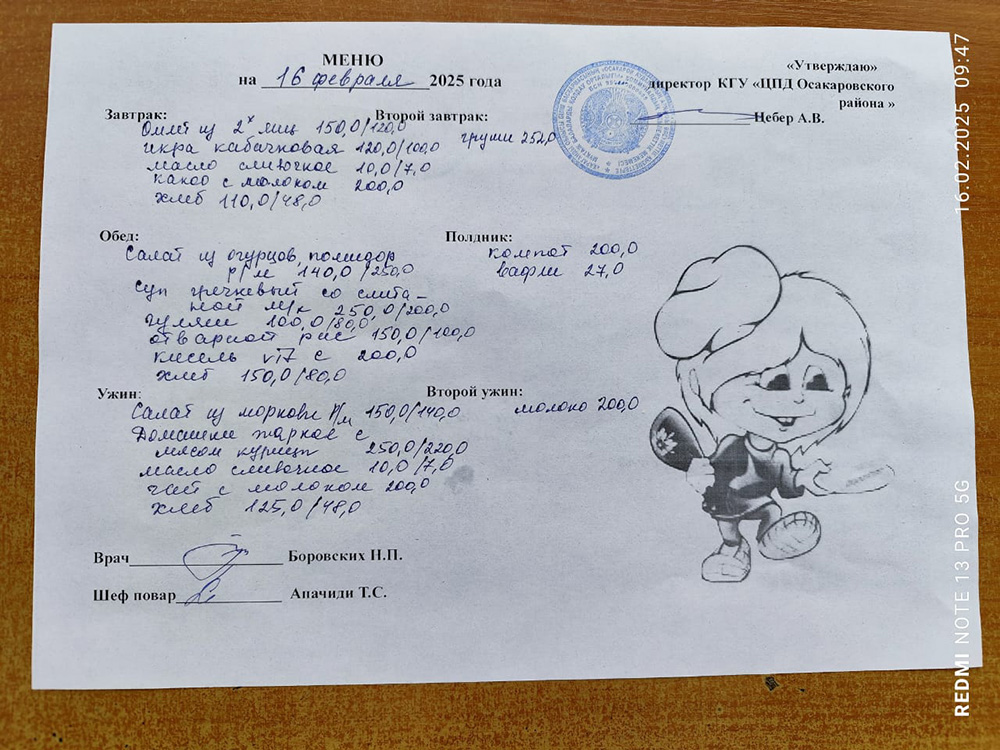 МЕНЮ
на 16 февраля 2025 года
«Утверждаю»
директор КГУ «ЦПД Осакаровского
района »
Цебер А.В.
Завтрак:
Омлет из 2х яиц 150,0/120,0
икра кабачковая 120,0/100,0
масло сливочное 10,0/7,0
какао с молоком 200,0
хлеб 110,0/48,0
Второй завтрак:
груши 252,0
Обед:
Салат из огурцов, помидор
р/м 140,0/250,0
Суп гречневый со смета-
ной м/к 250,0/200,0
гуляш 100,0/80,0
отварной рис 150,0/100,0
кисель vit с 200,0
хлеб 150,0/80,0
Полдник:
компот 200,0
вафли 27,0
Ужин:
Салат из моркови р/м 150,0/140,0
Домашнее жаркое с
мясом курицы 250,0/220,0
масло сливочное 10,0/7,0
чай с молоком 200,0
хлеб 125,0/48,0
Второй ужин:
молоко 200,0
Врач Боровских Н.П.
Шеф повар Апачиди Т.С.
REDMI NOTE 13 PRO 5G
16.02.2025 09:47